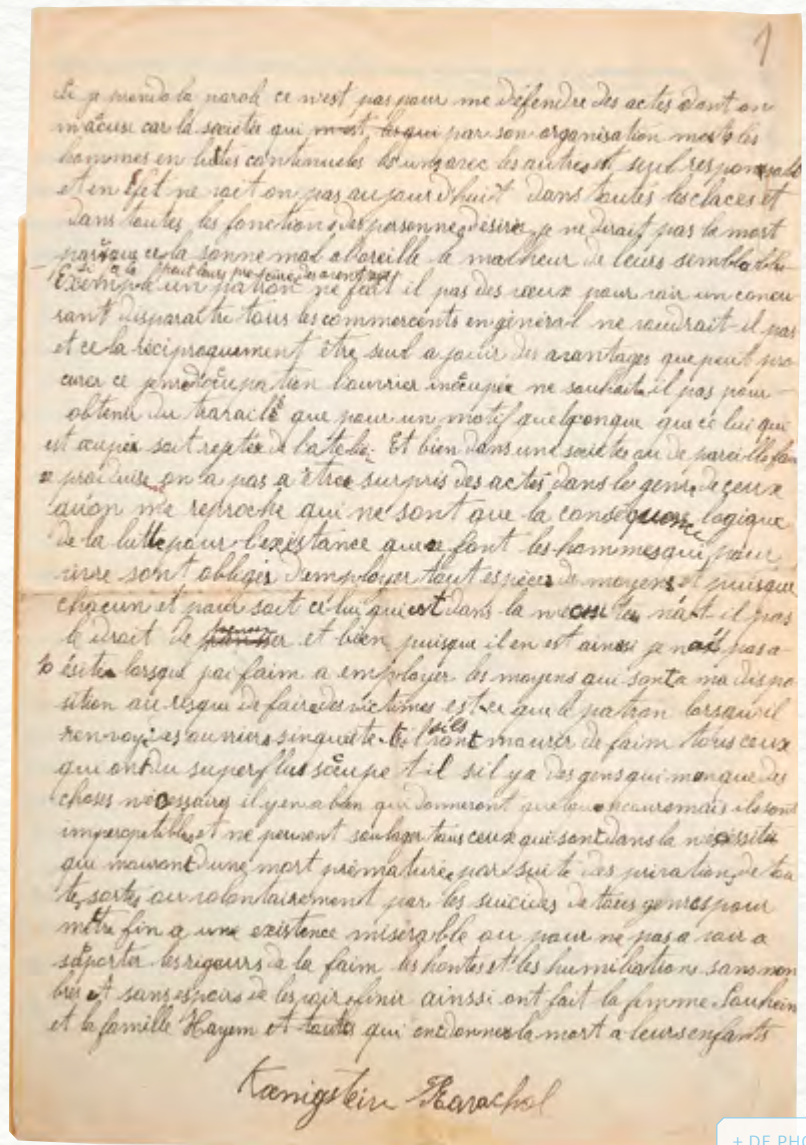 1
Si je prends la parole ce n'est pas pour me défendre des actes dont on
m'acuse car la societée qui par son organisation met les
hommes en luttes continueles les uns avec les autres est seul responsable
et en éfet ne voit on pas aujourd'huit dans toutes les claces et
dans toutes les fonctions des personnes désirer je ne dirait pas la mort
parceque cela sonne mal a l'oreille le malheur de leurs semblable
si cela peut leurs procurer des aventages
Exemple un patron ne fait il pas des vœux pour voir un concu
rant disparaitre tous les commercents en général ne voudrait-il pas
et cela réciproquement être seul a jouir des avantages que peut pro
curer ce  l'ouvrier inocupée ne souhaite il pas pour
obtenir du travaile que pour un motif quelqconque que celui qui
est ocupée soit rejetée de l'atelier. Et bien dans une societée ou de pareille fait
se produise on a pas a être surpris des actes dans le genre de ceux
qu'on me reproche qui ne sont que la conséquence logique
de la lutte pour l'existance que se font les hommes qui pour
vivre sont obligés d'employer tout espèces de moyens et puisque
chacun et pour soit celui qui est dans la nécessitée n'a t il pas
le droit de penser et bien puisque il en est ainssi je n'ai pas a
ésiter lorsque j'ai faim a employer les moyens qui sont a ma dispo
sition au risque de faire des victimes est-ce que le patron lorsquil
renvoye des ouvriers sinquiete t-il sils vont mourir de faim tous ceux
qui ont du superflus s'ocupe t il sil y a des gens qui manque des
choses nécessaires il y en a bien qui donneront quelque secour mais ils sont
imperceptibles et ne peuvent soulager tous ceux qui sont dans la nécessitée
qui mouront d'une mort prématurée par suite des privations de tou
te sortes ou volontairement par les suicides de tous genres pour
mètre fin a une existence misérable ou pour ne pas avoir a
suporter les rigeurs de la faim les hontes et les humiliations sans nom
bres et sans espoirs de les voir finir ainssi ont fait la famille Hayem
et la femme Souhein qui on donner la mort a leurs enfants
Kœnigstein Ravachol
+ DE PHO